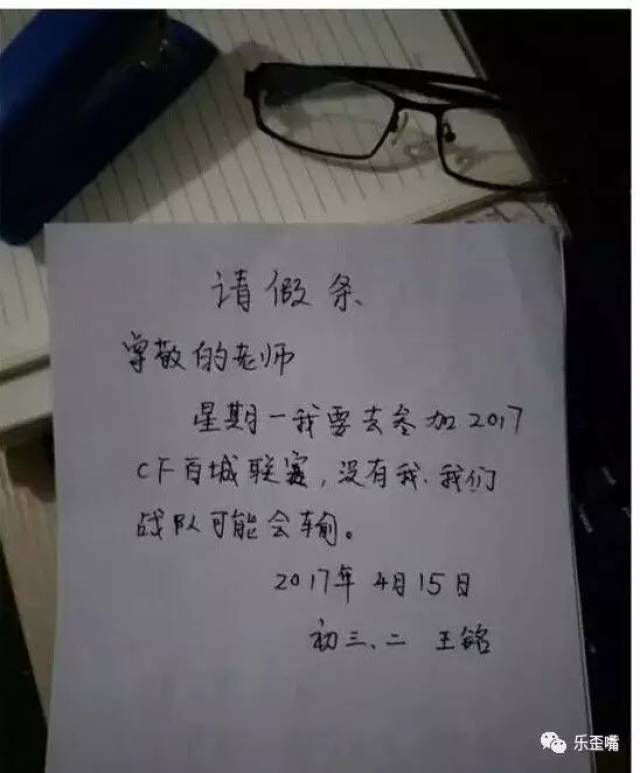 请假条
尊敬的老师
星期一我要去参加2017
CF百城联赛,没有我、我们
战队可能会输。
2017年4月15日
初三、二 王铭
乐歪嘴